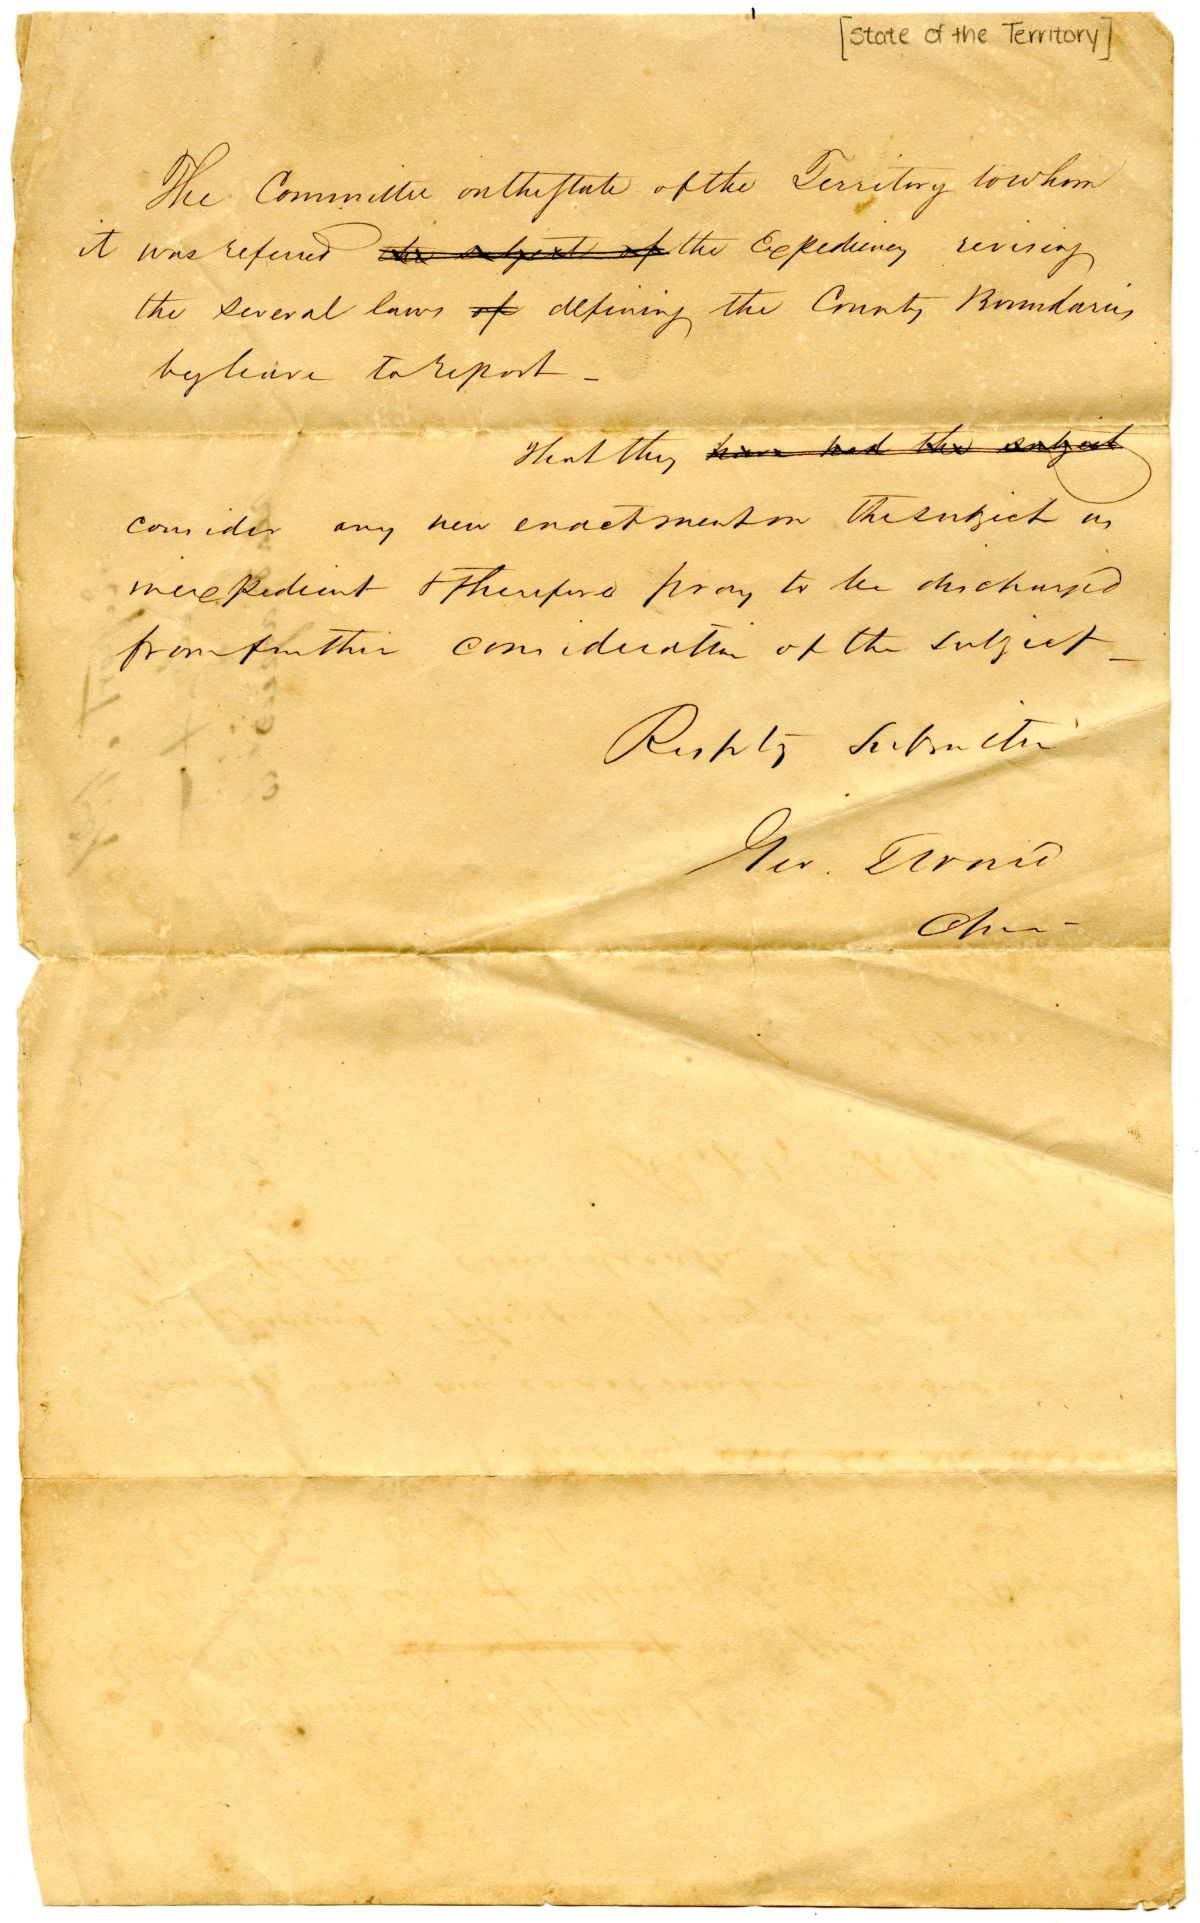 [State of the Territory]
The Committee on the State of the Territory to whom
it was referred the subject of the Expediency revising
the several laws of defining the County Boundaries
beg leave to report –
that they have had the subject
consider any new enactment on the subject as
inexpedient & therefore pray to be discharged
from further consideration of the subject –
Respfly Submitted
Geo.
Chm